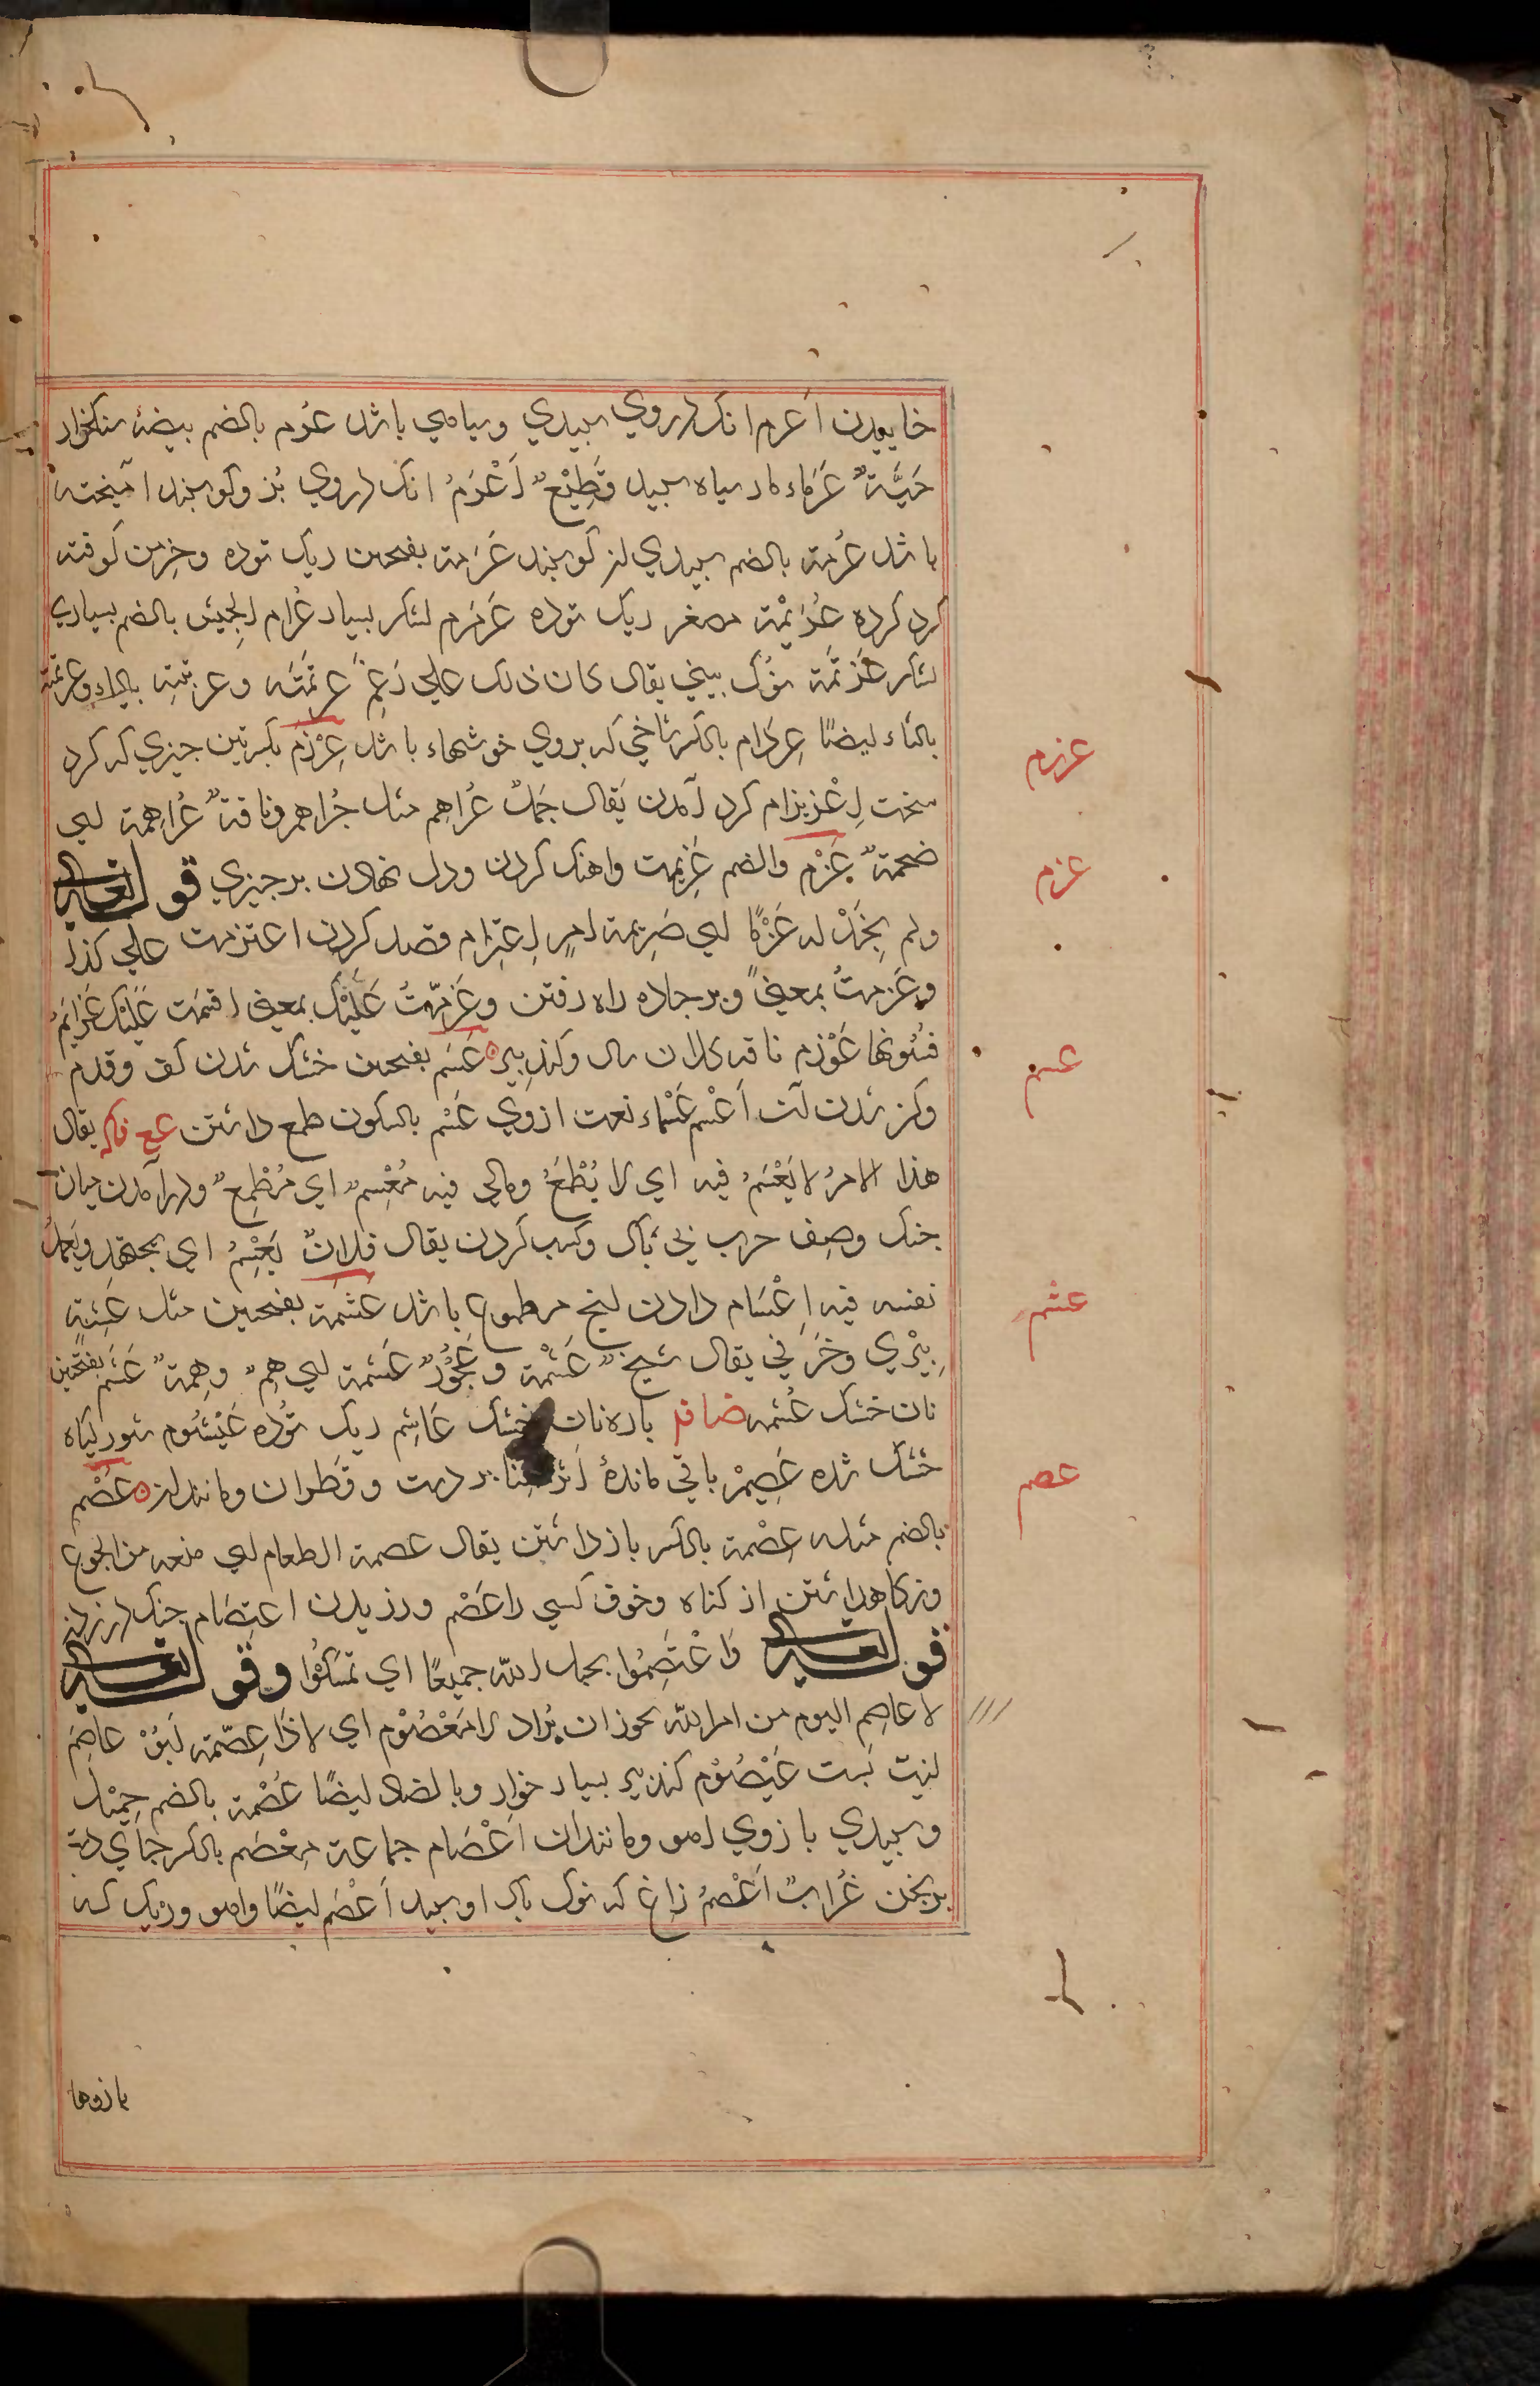 خاییدن اَعرم انک درروی سپیدی وسیاهی باشد عُرم بالضم بیضهٔ سنکخوار
حَیَّةٌ عَرَماء مار سیاه سپید قَطِیْعٌ اَعْرَمُ انک درروی بُز وکوسبند امیخته
باشد عُرمة بالضم سپیدی لز کوسبند عَرَمة بفتحین ریک توده وخِرمن کوفته
کرد کرده عُرَیْمَة مصغر ریک توده عَرَمْرَم لشکر بسیار عُرام الجیش بالضم بسیاری
لشکر عَرْتَمَة نوک بینی یقال کان ذلک علی رَغِمِ عَرتمَتَه وعرتبته بالباء وعرثمة
بالثاء ایضًا عِرذام بالکسر شاخی که بروی خوشهاء باشد عِرْزَم بکسرتین چیزی که کرد
سخت اِعْرِنزام کرد آمدن یقال جَمَلٌ عُراهِم مثل جُراهم وناقةٌ عُراهِمة ای
ضخمةٌ عَزْم والضم عَزیمت واهنک کردن ودل نهادن برچیزی قوله تعالی
ولم نَجِدْ له عَزْمًا ای صَرِیمة امرٍ اِعتِزام قصد کردن اعتزمت علی کذا
وعَزمتُ بمعنیً وبر جاده راه رفتن وعَزمْتُ عَلَیْک بمعنی اقسمت عَلَیْک عَزایِمُ
عَوْزم ناقه کلان سال وکنده پیر عَسَم بفتحین خشک شدن کف وقدم
وکژ شدن آن اَعْسم عَسْماء نعت ازوی عَسْم بالسکون طمع داشتن یقال
هذا الامرُ لا یَعْسَمُ فیه ای لا یُطْمَعُ ومالی فیه مُعْسِمٌ ای مُطْمِعٌ ودرآمدن میان
جنک وصف حرب بی باک وکسب کردن یقال فلانٌ یَعْسِمُ ای یجتهد ویُعمِلُ
نفسه فیه اِعْسَام دادن انچ مرطموع باشد عشَمَة بفتحین مثل عَشَبَة
پِیْری وخَرَفی یقال شیخٌ عَشَمَة وعَجُوْزٌ عَشَمة ای هِمٌ وهِمَةٌ عَشَم بفتحتین
نان خشک عُشمه پاره نان خشک عَاشِم ریک تُوده عَیْشُوم شور کیاه
خشک شده عَصِیْم باقی ماندهٔ وقطران ومانند ان عُصْم
بالضم مثله عِصْمة بالکسر بازداشتن یقال عصمه الطعام ای منعه من الجوع
ونکاهداشتن از کناه وخوف کسی را عَصْم ورزیدن اعتِصَام چنک درزدن
قوله تعالی وَاعْتَصِمُوا بحبل الله جمیعًا ای تَمَسَّکُوا وقوله تعالی
لا عاصِمَ الیوم من امر الله یجوز ان یُراد لا مَعْصُوْم ای لا ذَا عِصْمَة اَبُوْ عاصِم
کنیت پَست عَیْصُوْم کنده پیر بسیار خوار وبالضاد ایضًا عُصْمة بالضم حِمْیل
وسپیدی بازوی اهو ومانند ان اَعْصَام جماعة مِعْصَم بالکسر جای دسته
برنجن غُرابٌ اَعْصَمُ زاغ که نوک بال او سپید اَعْصَم ایضًا واهو وریک که
بازوها
عرزم
عزم
عسم
عشم
عصم